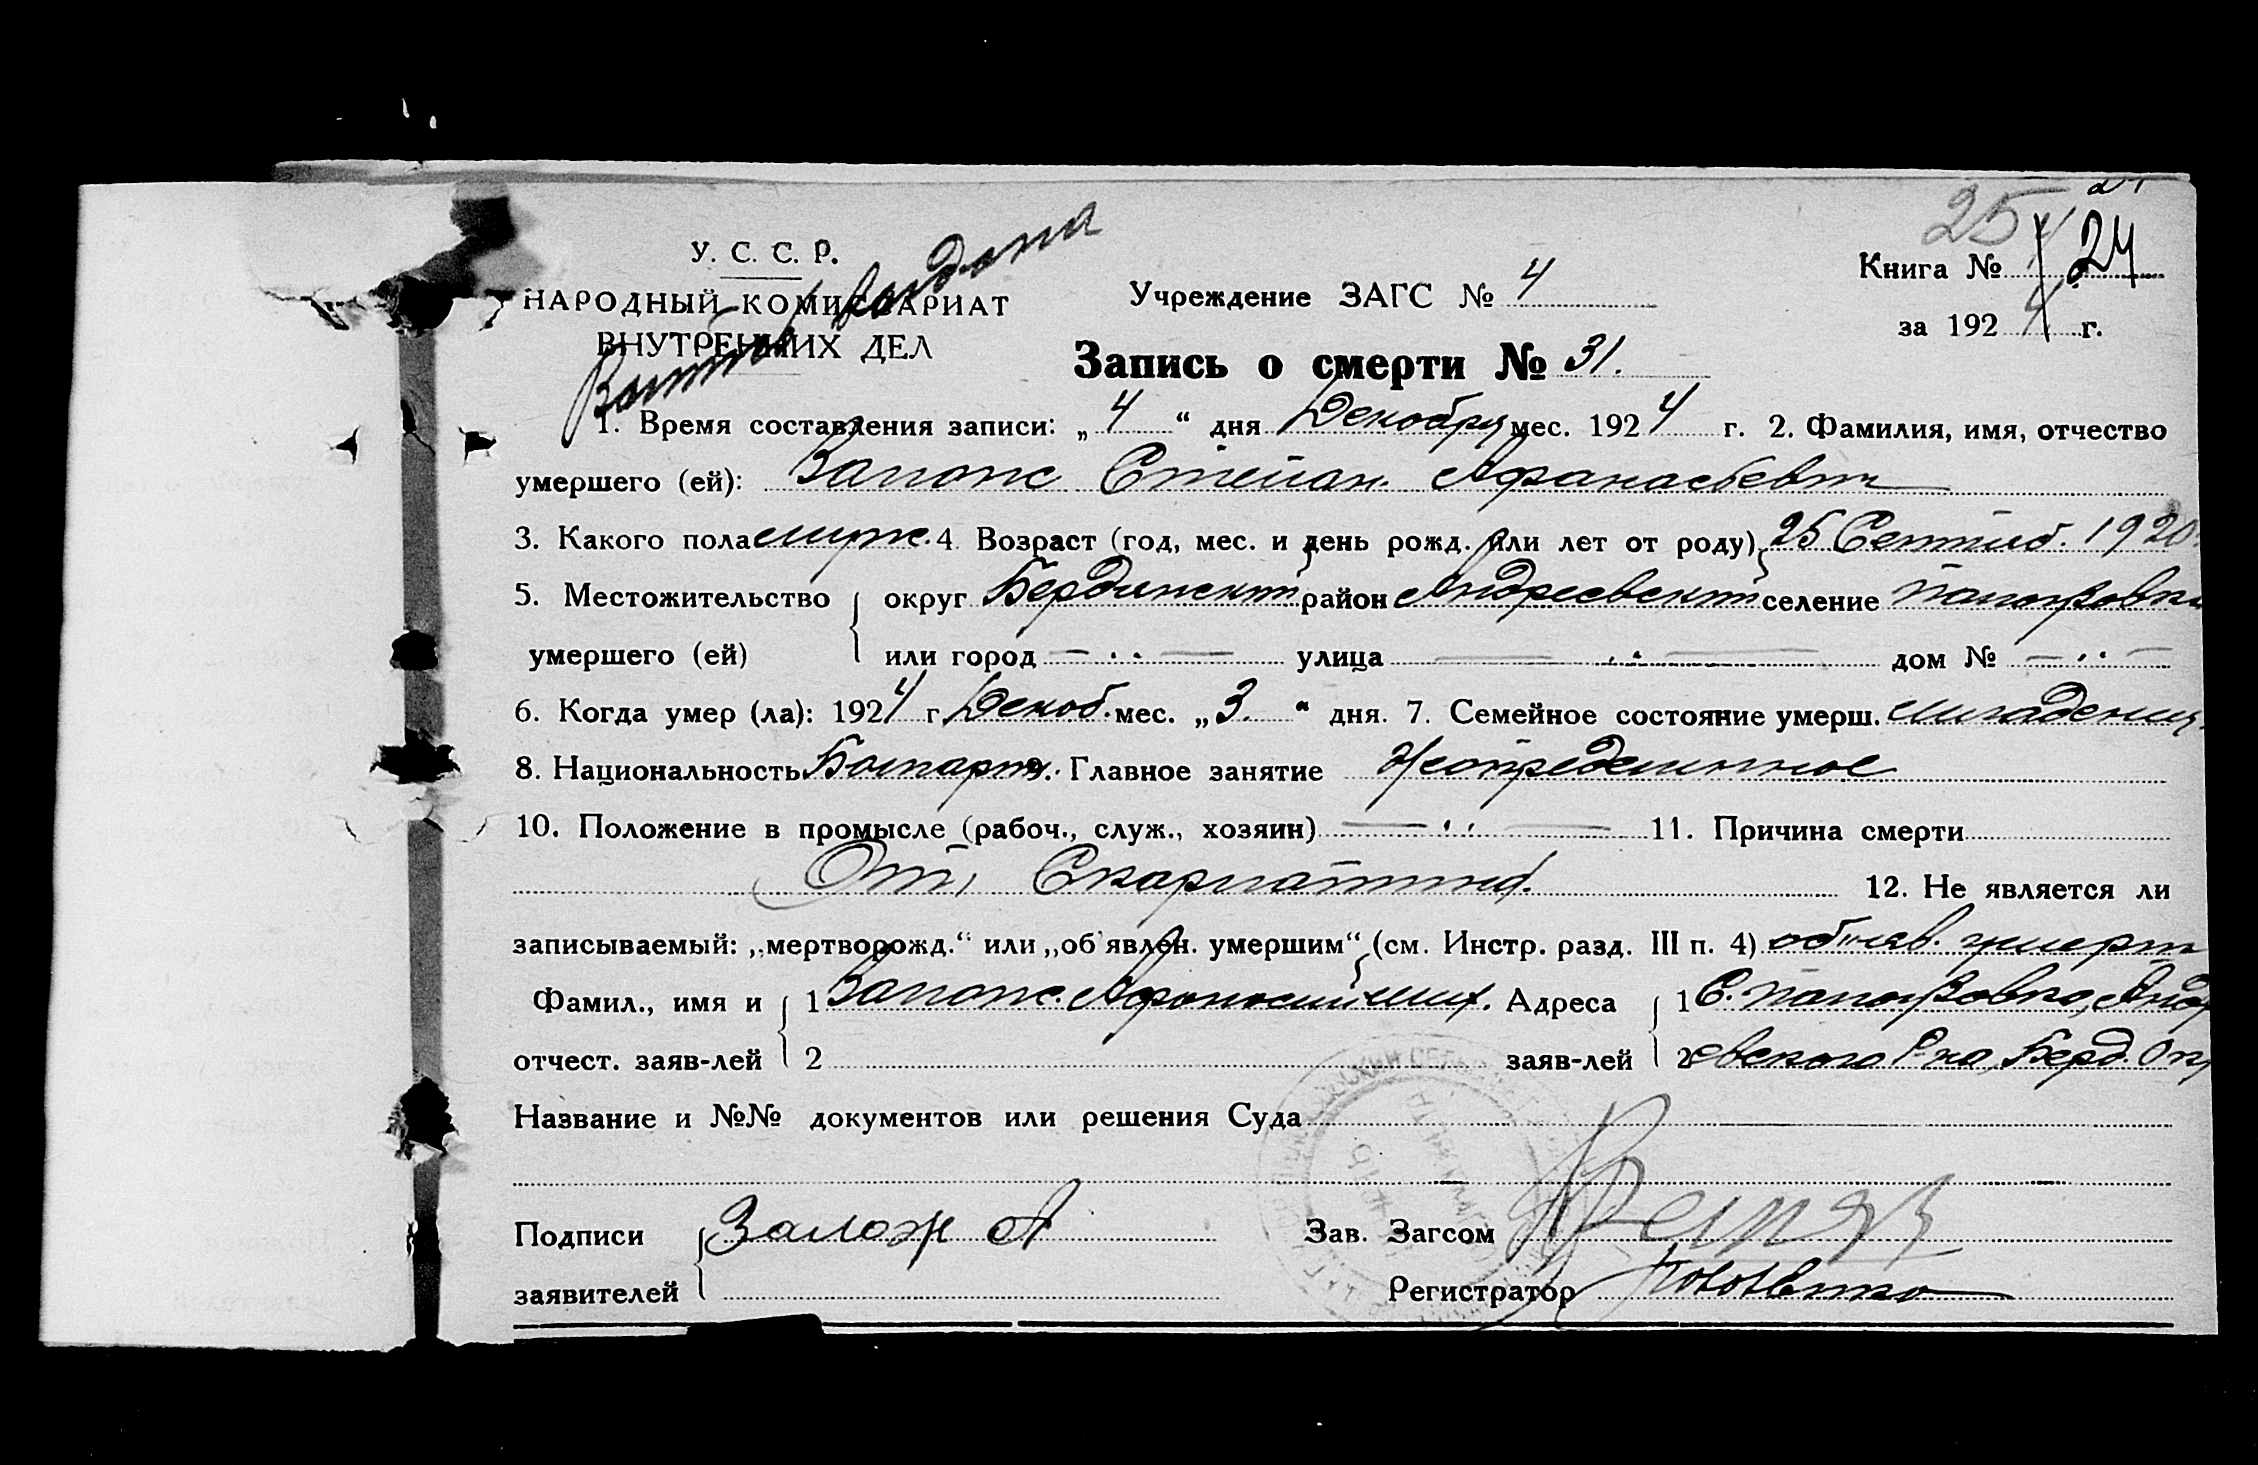 25
24
У. С. С. Р.
НАРОДНЫЙ КОМИССАРИАТ
ВНУТРЕННИХ ДЕЛ
Выпись выдана
Учреждение ЗАГС № 4
Книга № 24
за 1924 г.
Запись о смерти № 31.
1. Время составления записи: „4“ дня Декабря мес. 1924 г. 2. Фамилия, имя, отчество
умершего (ей): Залож Степан Афанасьевич
3. Какого пола муж. 4. Возраст (год, мес. и день рожд. или лет от роду) 25 Сентяб. 1920
5. Местожительство округ Бердянский район Андреевский селение
умершего (ей) или город — „ — улица — „ — дом № — „ —
6. Когда умер (ла): 1924 г. Декаб. мес. „3.“ дня. 7. Семейное состояние умерш. младенец
8. Национальность Болгарин 9. Главное занятие
10. Положение в промысле (рабоч., служ., хозяин) — „ — 11. Причина смерти
От Скарлатины. 12. Не является ли
записываемый: „мертворожд.“ или „об'явлен. умершим“ (см. Инстр. разд. III п. 4) объяв. умерш
Фамил., имя и 1 Залож Адреса 1 С. Андре
отчест. заяв-лей 2 заяв-лей 2 евского Р-на, Берд. Окр
Название и №№ документов или решения Суда
Подписи Залож А Зав. Загсом
заявителей Регистратор